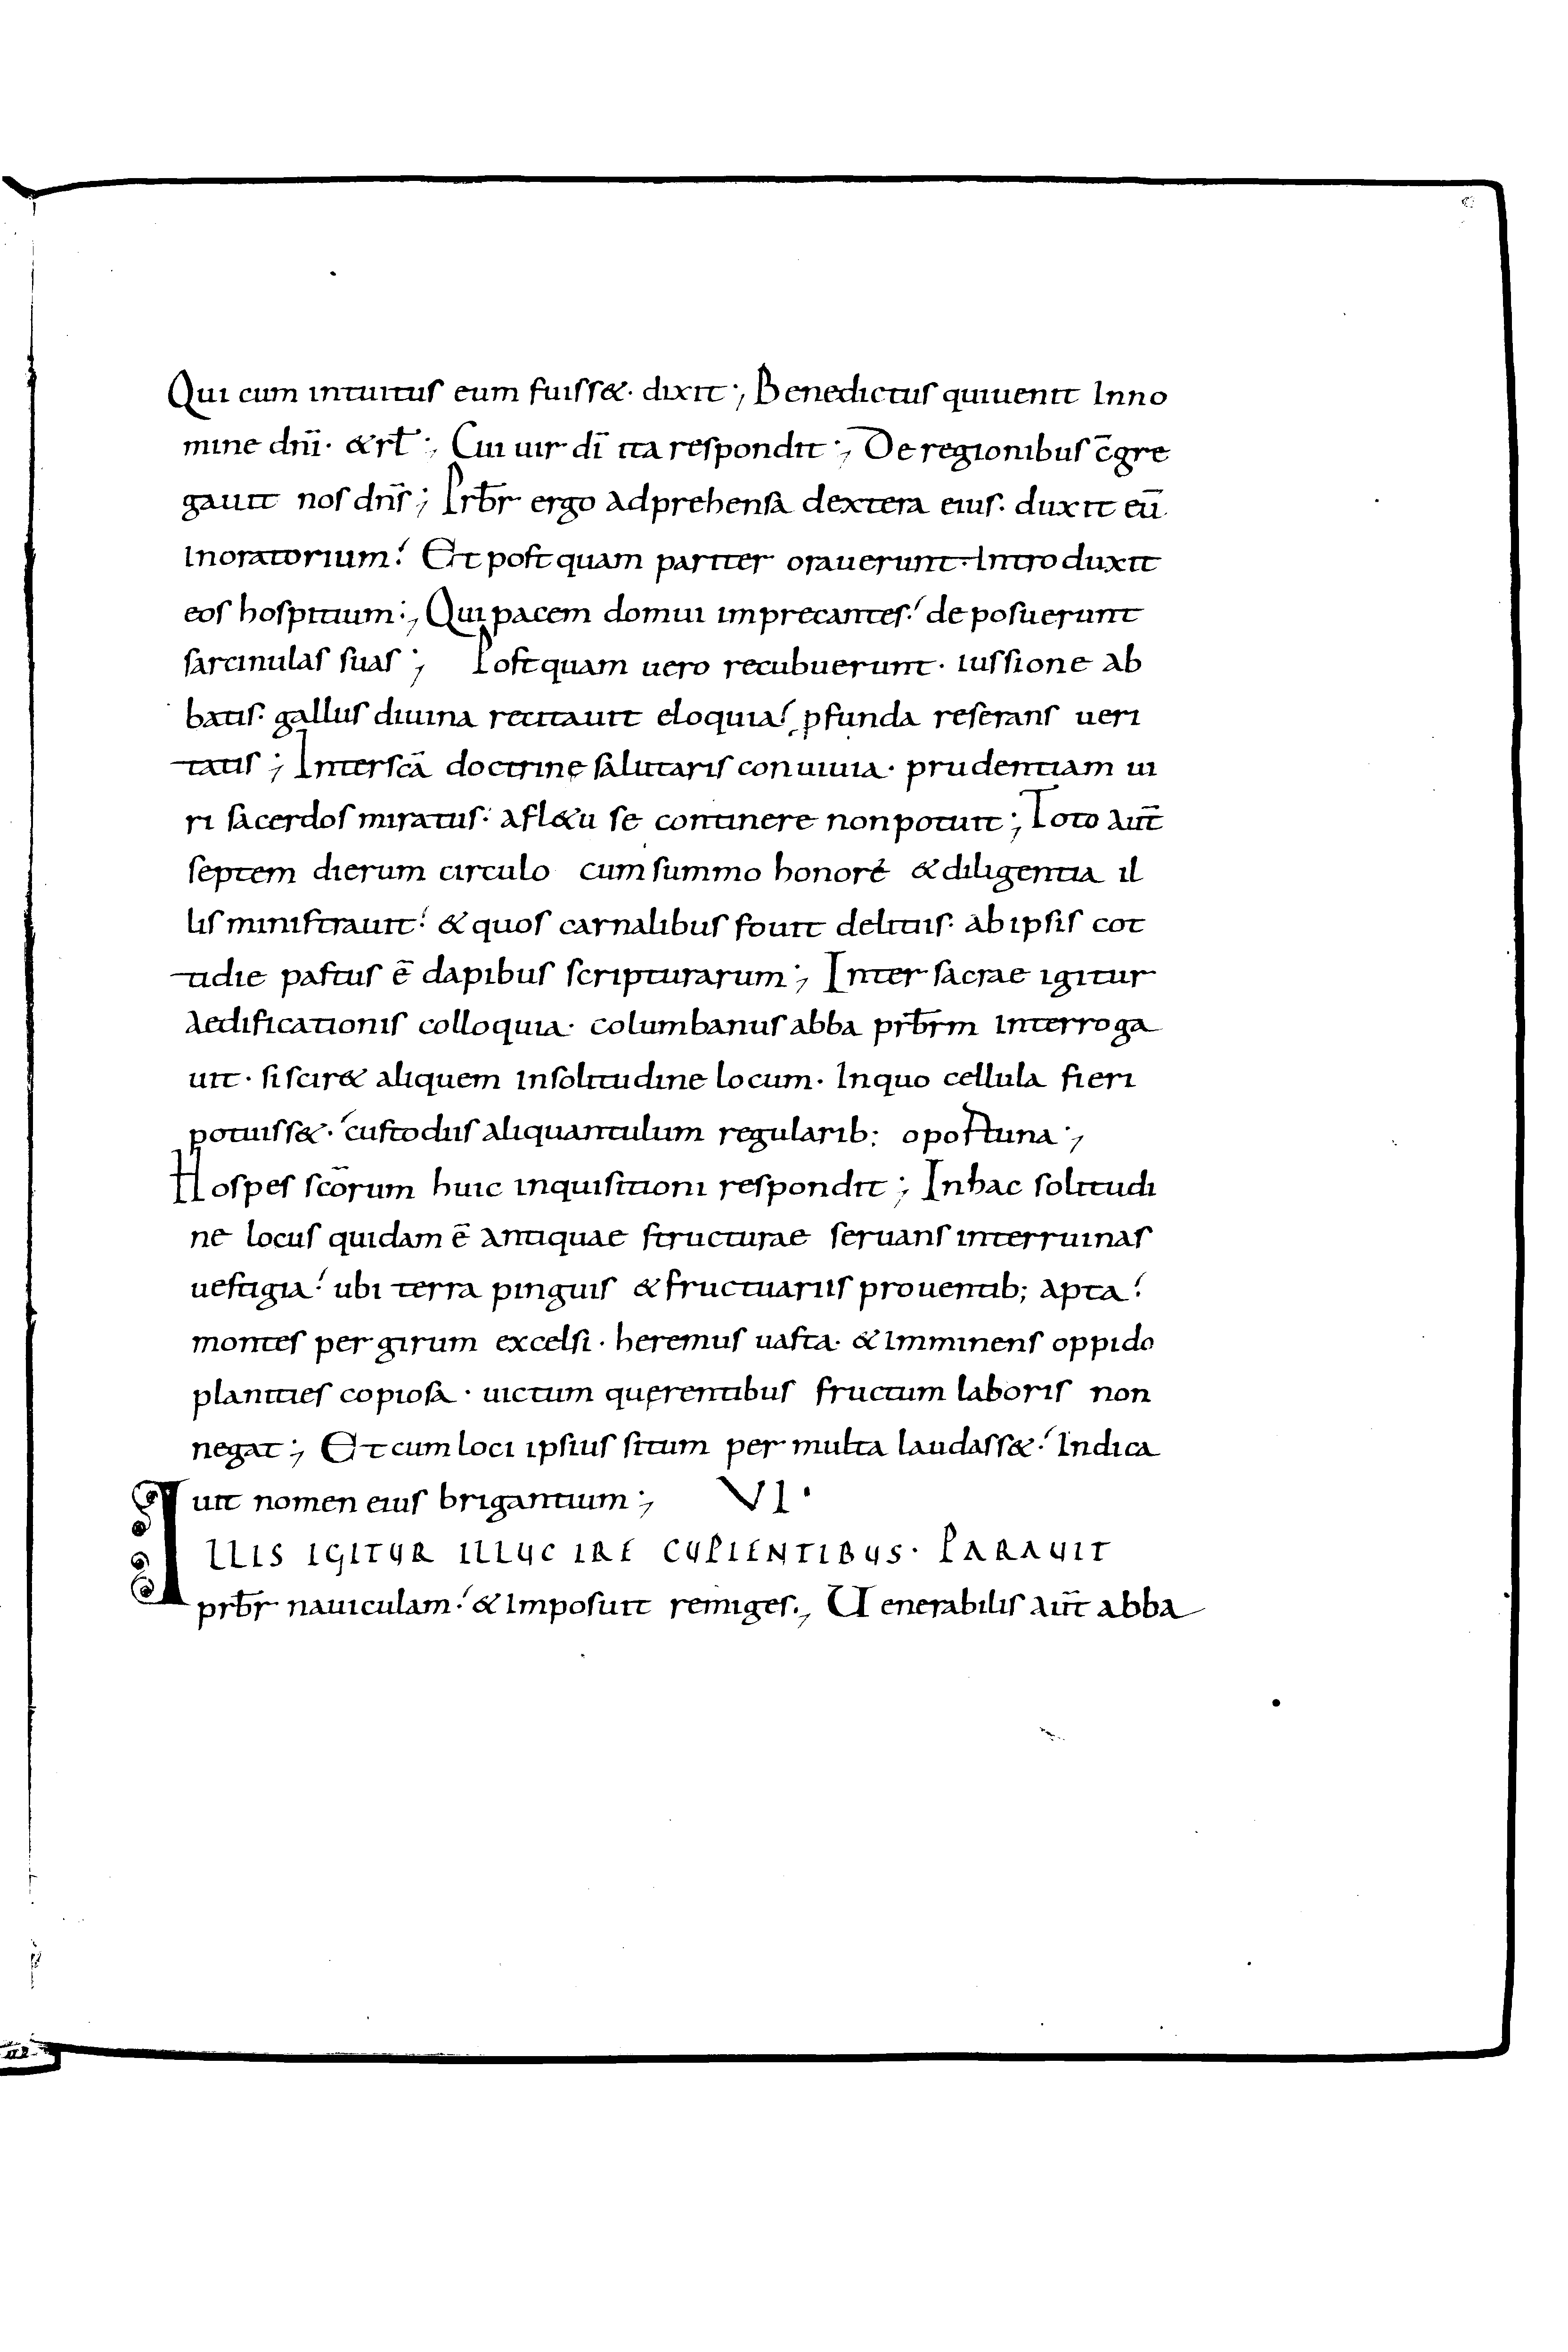 Qui cum intuitus eum fuiss&. dixit; Benedictus quiuenit Inno
mine dnī. &rł; Cui uir dī ita respondit; De regionibus c̄gre
gauit nos dns̄; Prb̄r ergo adprehensa dextera eius. duxit eū
inoratorium. Et postquam pariter orauerunt. Introduxit
eos hospitium; Qui pacem domui imprecantes. deposuerunt
sarcinulas suas; Postquam uero recubuerunt. iussione ab
batis. gallus diuina recitauit eloquia. ꝓfunda reserans ueri
tatis; Interscā doctrinę salutaris conuiuia. prudentiam ui
ri sacerdos miratus. afl&u se continere nonpotuit; Toto aut̄
septem dierum circulo cum summo honore &diligentia il
lis ministrauit. & quos carnalibus fouit delitiis. ab ipsis cot
tidie pastus ē dapibus scripturarum; Inter sacrae igitur
aedificationis colloquia. columbanus abba prb̄rm interroga
uit. si scir& aliquem insolitudine locum. Inquo cellula fieri
potuiss&. custodiis aliquantulum regularib; oportuna;
Hospes scōrum huic inquisitioni respondit; Inhac solitudi
ne locus quidam ē antiquae structurae seruans interruinas
uestigia. ubi terra pinguis &fructuariis prouentib; apta.
montes per girum excelsi. heremus uasta. &imminens oppido
planities copiosa. uictum quęrentibus fructum laboris non
negat; Et cum loci ipsius situm per multa laudass&. Indica
uit nomen eius brigantium; VI.
ILLIS IGITUR ILLUC IRE CUPIENTIBUS. PARAUIT
prb̄r nauiculam. &imposuit remiges; Uenerabilis aut̄ abba